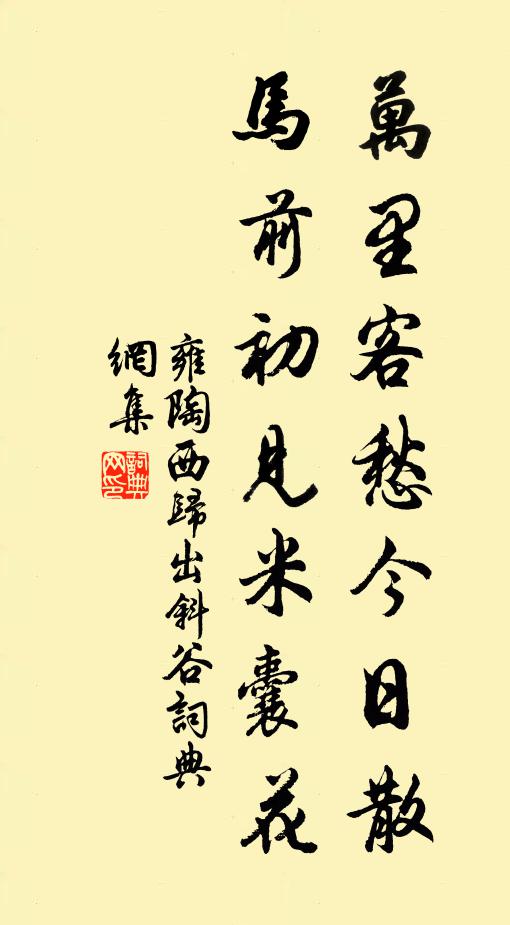 萬里客愁今日散
馬前初見米囊花
雍陶西歸出斜谷詞典
網集
詞典
网印